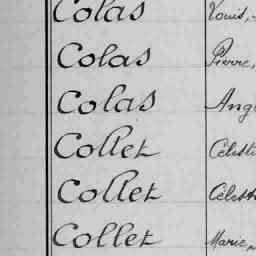 Colas Louis,
Colas Pierre,
Colas Ang
Collet Célesti
Collet Célest
Collet Marie,